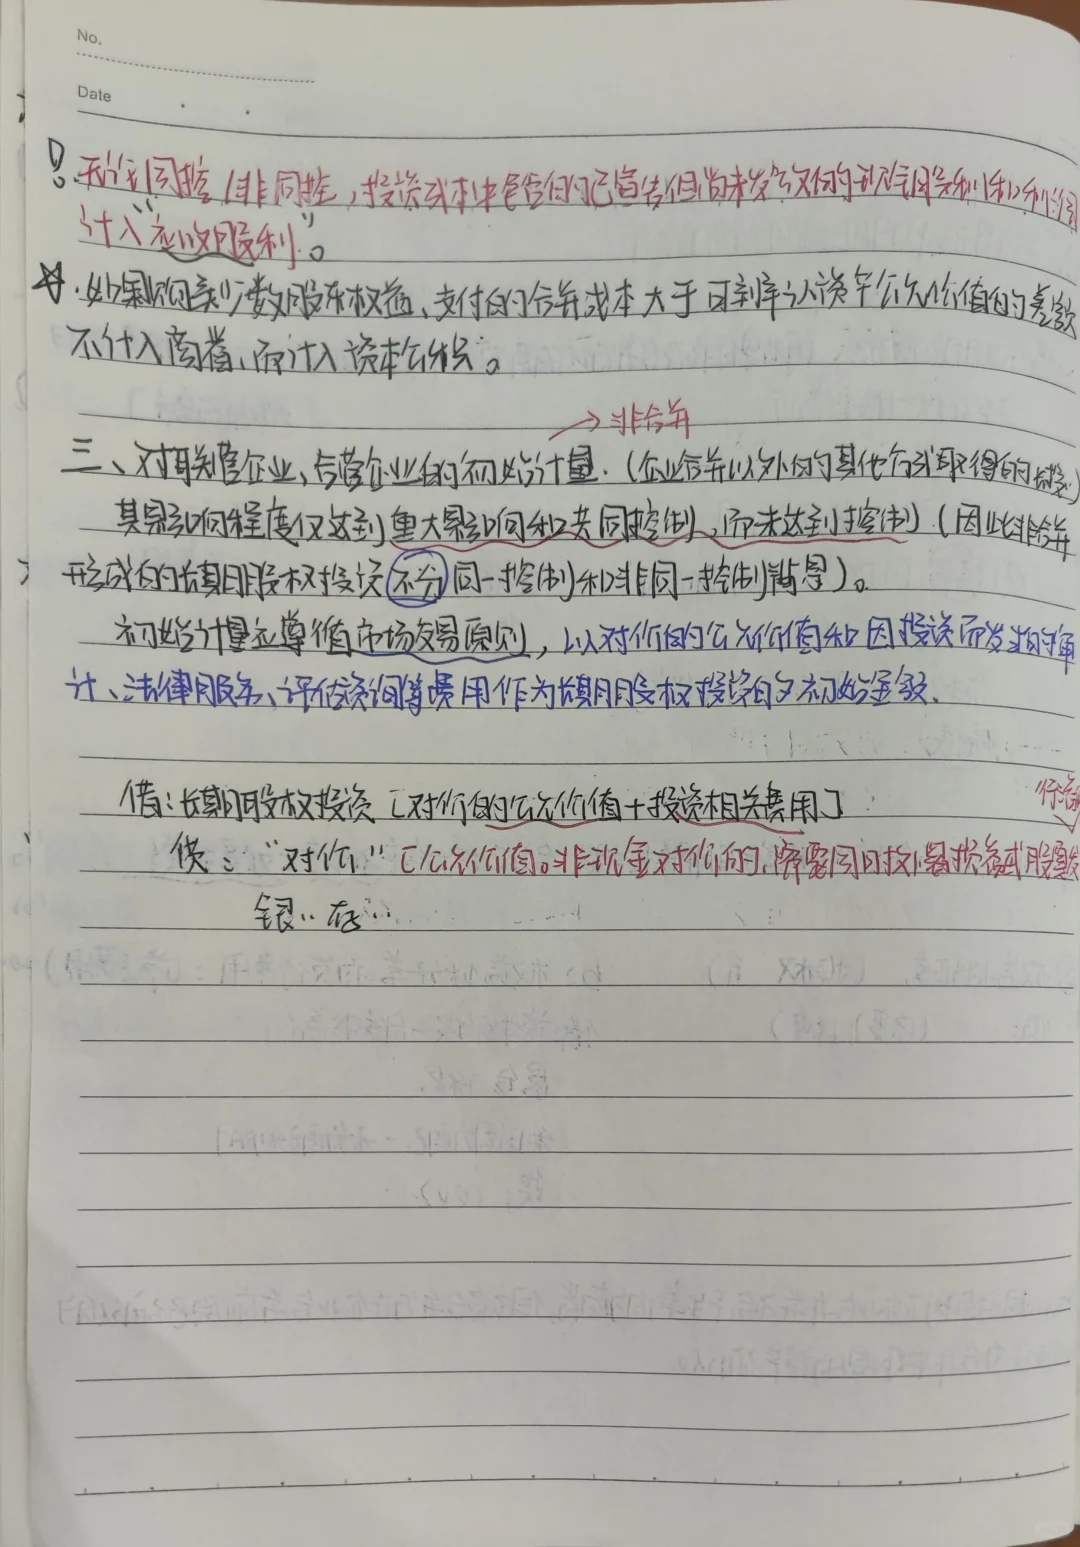 No.
Date
! 无论同控/非同控,投资成本中包含的已宣告但尚未发放的现金股利和利润
计入"应收股利"。
☆·如果购买少数股东权益、支付的合并成本大于可辨认资产公允价值的差额
不计入商誉、而计入资本公积。
→非合并
三、对联营企业、合营企业的初始计量.(企业合并以外的其他方式取得的长投)
其影响程度仅达到重大影响和共同控制,而未达到控制)(因此非合并
形成的长期股权投资不分同一控制和非同一控制情景)。
初始计量应遵循市场交易原则,以对价的公允价值和因投资而发生的审
计、法律服务、评估咨询等费用作为长期股权投资的初始金额.
借:长期股权投资[对价的公允价值+投资相关费用]
贷:"对价"[公允价值。非现金对价的,需要同时按 损益或股票发
银..存..